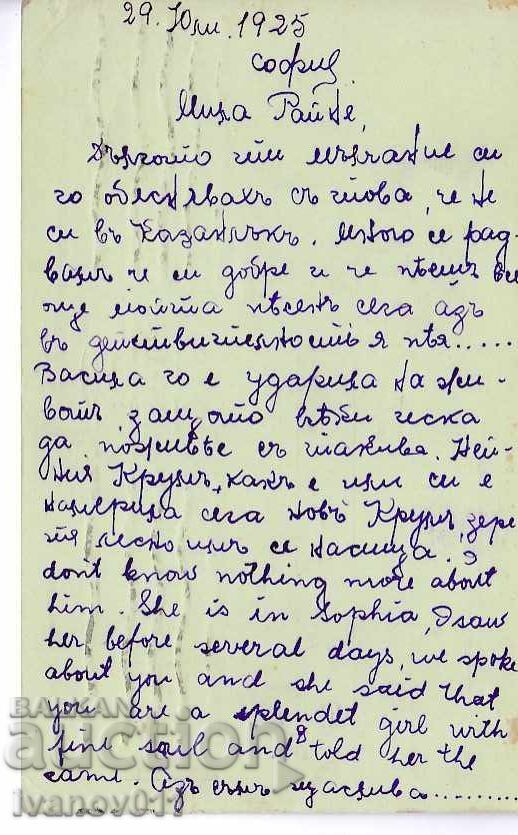 29. Юли. 1925
София
Мила Райне,
Дългото ти мълчание си
го обяснявахъ съ това, че не
си въ Казанлъкъ. Много се рад-
вамъ че си добре и че пѣешъ все
още моята пѣсень сега азъ
въ действителность я пѣя......
Васила го е ударила на жи-
вотъ, защото вѣки иска
да поживѣе съ такива. Ней-
ния Крумъ, какъ е или си е
намерила сега новъ Крумъ, зере
тя лесно се насища. I
don't know nothing more about
him. She is in Sophia, I saw
her before several days, we spoke
about you and she said that
you are a splendet girl with
fine soul and I told her the
came. Азъ съмъ щаслива..........
BALKAN
auction
ivanov011